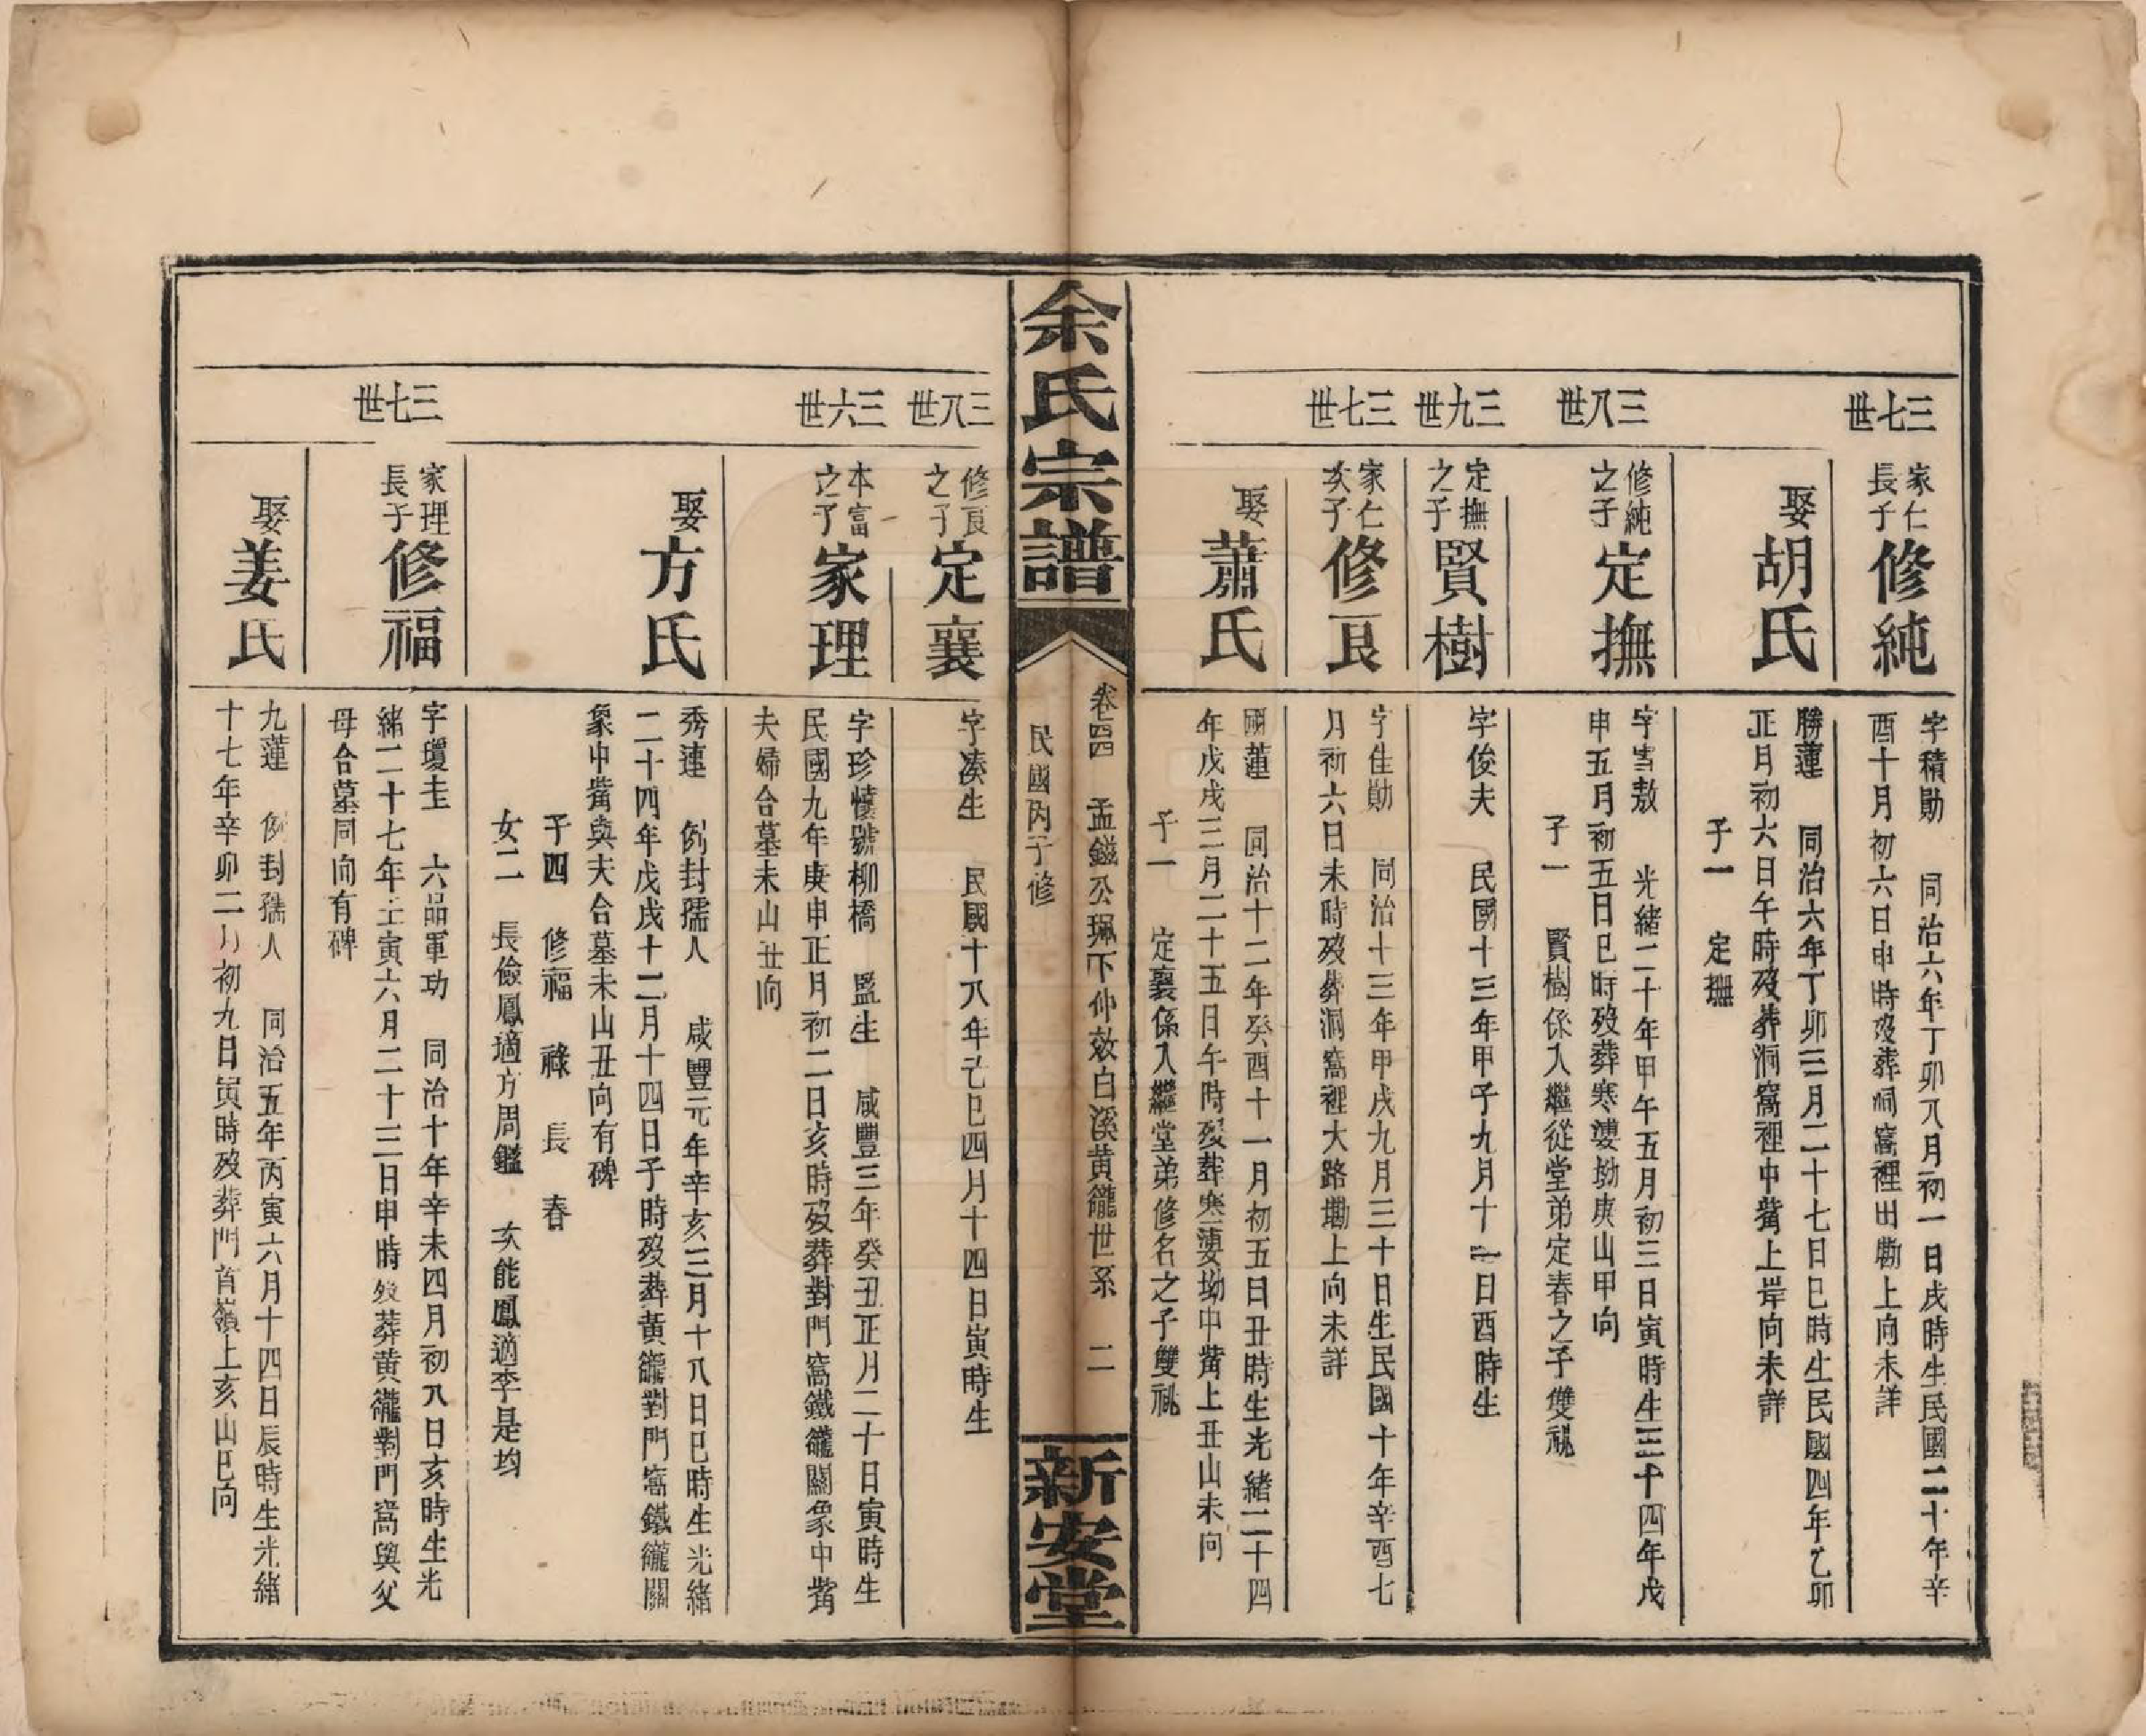 三七世
家仁
長子
修純
字積勛 同治六年丁卯八月初一日戌時生民國二十年辛
酉十月初六日申時歿葬洞窩裡田塝上向未詳
娶
胡氏
勝蓮 同治六年丁卯三月二十七日巳時生民國四年乙卯
正月初六日午時歿葬洞窩裡中嘴上岸向未詳
子一 定撫
三八世
修純
之子
定撫
字雪敖 光緒二十年甲午五月初三日寅時生三十四年戊
申五月初五日巳時歿葬寒婆坳庚山甲向
子一 賢樹係入繼從堂弟定春之子雙祧
三九世
定撫
之子
賢樹
字俊夫 民國十三年甲子九月十一日酉時生
三七世
家仁
次子
修良
字佳勛 同治十三年甲戌九月三十日生民國十年辛酉七
月初六日未時歿葬洞窩裡大路塝上向未詳
娶
蕭氏
國蓮 同治十二年癸酉十一月初五日丑時生光緒二十四
年戊戌三月二十五日午時歿葬寒婆坳中嘴上丑山未向
子一 定襄係入繼堂弟修名之子雙祧
余氏宗譜
卷四四 孟鎡公珮下仲效白溪黄龍世系 二
民國丙子修
新安堂
三八世
修良
之子
定襄
字湊生 民國十八年己巳四月十四日寅時生
三六世
本富
之子
家理
字珍懷號柳橋 監生 咸豐三年癸丑正月二十日寅時生
民國九年庚申正月初二日亥時歿葬對門窩鐵䃧關象中嘴
夫婦合墓未山丑向
娶
方氏
秀連 例封孺人 咸豐元年辛亥三月十八日巳時生光緒
二十四年戊戌十二月十四日子時歿葬黃䃧對門窩鐵䃧關
象中嘴與夫合墓未山丑向有碑
子四 修福 祿 長 春
女二 長儉鳳適方周鑑 次能鳳適李是均
三七世
家理
長子
修福
字瓊圭 六品軍功 同治十年辛未四月初八日亥時生光
緒二十七年壬寅六月二十三日申時歿葬黄䃧對門窩與父
母合墓同向有碑
娶
姜氏
九蓮 例封孺人 同治五年丙寅六月十四日辰時生光緒
十七年辛卯二月初九日寅時歿葬門首嶺上亥山巳向